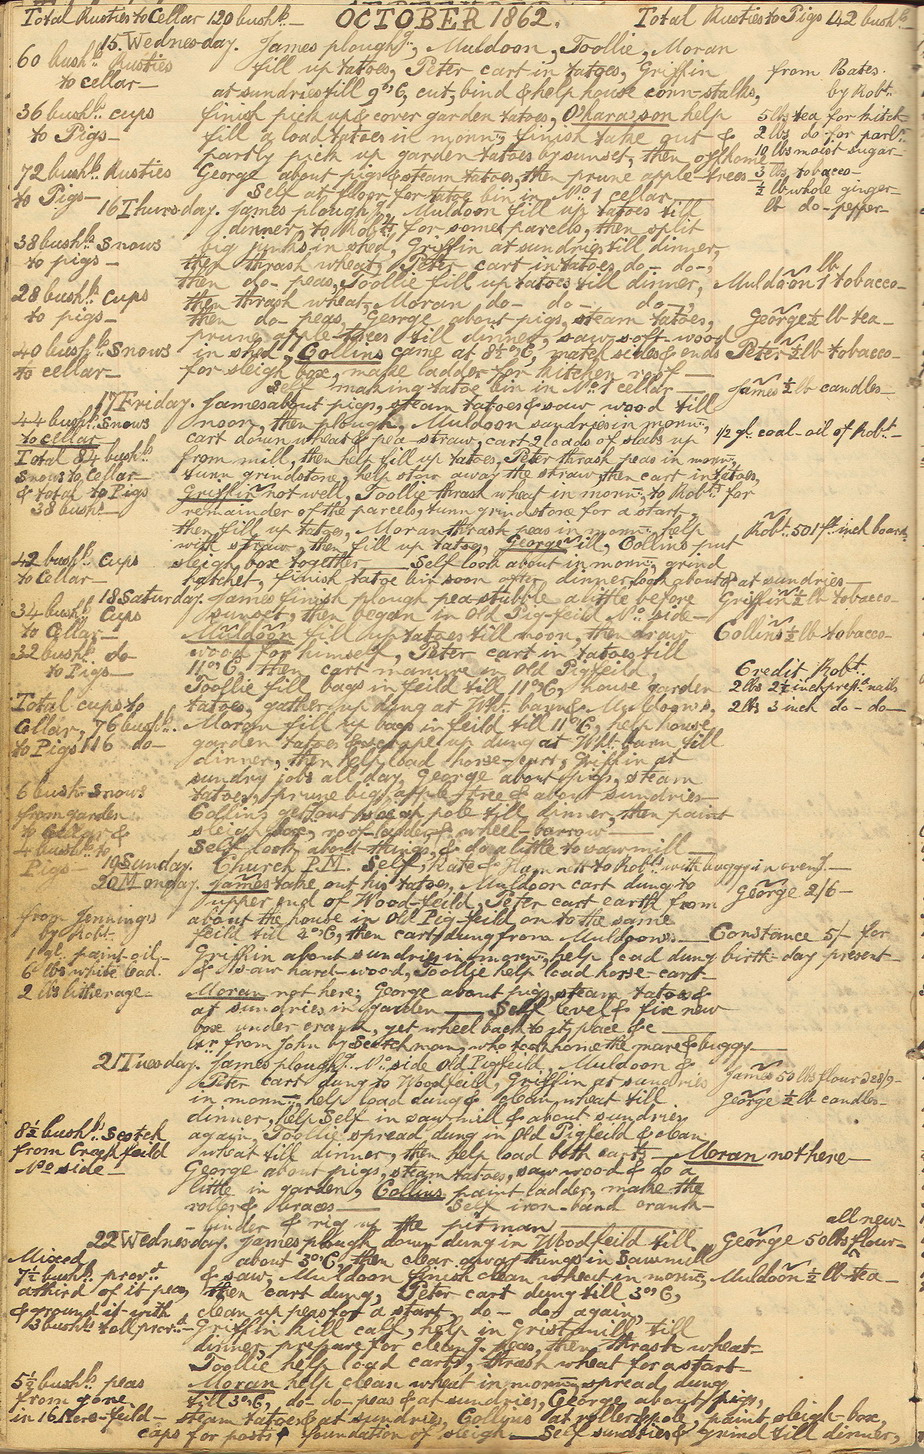 Total Rusties to Cellar 120 bushls.— OCTOBER 1862. Total Rusties to Pigs 142 bushls.—
15. Wednesday. James plough'g., Muldoon, Toollie, Moran
60 bushls. Rusties to cellar—
fill up tatoes, Peter cart in tatoes, Griffin
from Bates. by Robt.
at sundries till 9 oC, cut, bind & help house corn-stalks,
36 bushls. cups to Pigs—
finish pick up & cover garden tatoes, O'hara's son help
5 lbs tea for kitchn.
fill a load tatoes in mornn., finish take out &
2 lbs do for parlr.
partly pick up garden tatoes by sunset, then off home—
10 lbs moist sugar—
72 bushls. Rusties to Pigs—
George about pigs & steam tatoes, then prune apple-trees—
3 lbs tobacco—
Self at floor for tatoe bin in No. 1 cellar—
½ lb whole ginger—
16 Thursday. James plough'g, Muldoon fill up tatoes till
lb do-pepper—
dinner, to Robts. for some parcels, then split
38 bushls. Snows to pigs—
big junks in shed, Griffin at sundries till dinner,
then thrash wheat, Peter cart in tatoes, do— do—,
then do— peas, Toollie fill up tatoes till dinner,
Muldoon 1 lb tobacco—
28 bushls. Cups to pigs—
then thrash wheat, Moran do— do— do—,
then do— peas, George about pigs, steam tatoes,
George ½ lb tea—
prune apple-trees till dinner, saw soft-wood
40 bushls. Snows to cellar—
in shed, Collins came at 8½ oC, match sides & ends
Peter ½ lb tobacco—
for sleigh box, make ladder for kitchen roof—
Self making tatoe bin in No. 1 cellar—
James ½ lb candles—
17 Friday. James about pigs, steam tatoes & saw wood till
44 bushls. Snows to cellar
noon, then plough, Muldoon sundries in mornn.,
cart down wheat & pea-straw, cart 2 loads of slabs up
1/2 gl. coal-oil of Robt—
Total 84 bushls. Snows to Cellar— & total to Pigs 38 bushls.—
from mill, then help fill up tatoes, Peter thrash peas in mornn.,
turn grindstone, help stow away the straw, then cart in tatoes,
Griffin not well, Toollie thrash wheat in mornn., to Robts. for
remainder of the parcels, turn grindstone for a start,
then fill up tatoes, Moran thrash peas in mornn., help
Robt. 501 ft. inch board
with straw, then fill up tatoes, George ill, Collins put
42 bushls. Cups to Cellar—
sleigh box together— Self look about in mornn., grind
hatchet, finish tatoe bin soon after dinner, look about & at sundries—
18 Saturday. James finish plough pea stubble a little before
Griffin ½ lb tobacco—
34 bushls. Cups to Cellar—
sunset, then began in Old Pig-feild No. side—
Muldoon fill up tatoes till noon, then draw
Collins ½ lb tobacco—
32 bushls. do— to Pigs—
wood for himself, Peter cart in tatoes till
11 oC, then cart manure in Old Pigfeild,
Credit Robt.
Toollie fill bags in feild till 11 oC, house garden
2 lbs 2½ inch prest. nails
Total cups to Cellar, 76 bushls. to Pigs 116 do—
tatoes, gather up dung at Wht. barn & Muldoon's,
2 lbs 3 inch do— do—
Moran fill up bags in feild till 11 oC, help house
garden tatoes & scrape up dung at Wht. barn till
dinner, then help load horse-cart, Griffin at
sundry jobs all day, George about pigs, steam
6 bushls. Snows from garden to Cellar & 4 bushls. to Pigs—
tatoes, prune big apple-tree & about sundries—
Collins get out sweep pole till dinner, then paint
sleigh box, roof-ladder & wheel-barrow—
Self look about things, & do a little to sawmill—
19 Sunday. Church P.M. Self, Kate & Hamnett to Robts. with buggy in eveng.—
20 Monday. James take out his tatoes, Muldoon cart dung to
George 2/6—
upper end of Wood-feild, Peter cart earth from
from Jennings by Robt.
about the house in Old Pig-feild on to the same
feild till 4 oC, then cart dung from Muldoon's—
Constance 5/— for birth-day present—
1 gl. paint-oil—
Griffin about sundries in mornn., help load dung
6 lbs white lead.
& saw hard-wood, Toollie help load horse-cart—
2 lbs litherage—
Moran not here; George about pigs, steam tatoes &
at sundries in garden— Self level & fix new
box under crank, get wheel back to its place &c—
lr. from John by Scotchman, who took home the mare & buggy—
21 Tuesday. James plough'g. No. side Old Pigfeild, Muldoon &
James 50 lbs flour
Peter cart dung to Woodfeild, Griffin at sundries
in mornn., help load dung & clean wheat till
George ½ lb candles—
dinner, help Self in sawmill & about sundries
8½ bushls. Scotch from Creekfeild No. side—
again, Toollie spread dung in Old Pigfeild & clean
wheat till dinner, then help load both carts— Moran not here—
George about pigs, steam tatoes, saw wood & do a
little in garden, Collins paint ladder, make the
roller & braces— Self iron-band crank-
binder & rig up the pitman—
22 Wednesday. James plough down dung in Woodfeild till
George 50 lbs flour— all new—
Mixed 7½ bushls. prov'd. a third of it peas, & ground it with 3 bushls. tall prov'd.—
about 3 oC, then clear away things in Sawmill
& saw, Muldoon finish clean wheat in mornn.,
Muldoon ½ lb tea—
then cart dung, Peter cart dung till 3 oC,
clean up peas for a start, do— do— again,
Griffin kill calf, help in Gristmill till
dinner, prepare for cleang. peas, then thrash wheat—
Toollie help load carts, thrash wheat for a start—
5½ bushls. peas from gore in 16 Acre-feild—
Moran help clean wheat in mornn., spread dung
till 3 oC, do— do— peas & at sundries, George about pigs,
steam tatoes & at sundries, Collins at roller & pole, paint sleigh-box,
caps for posts & foundation of sleigh— Self sundries & grind till dinner,